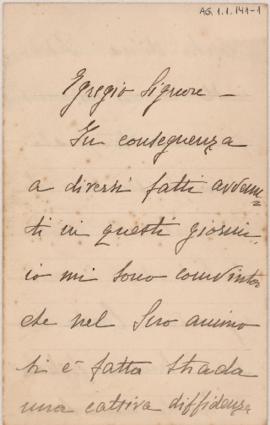 AG.1.1.141-1
Egregio Signore -
In conseguenza
a diversi fatti avvenu=
ti in questi giorni,
io mi sono convinto
che nel Suo animo
si è fatta strada
una cattiva diffidenza